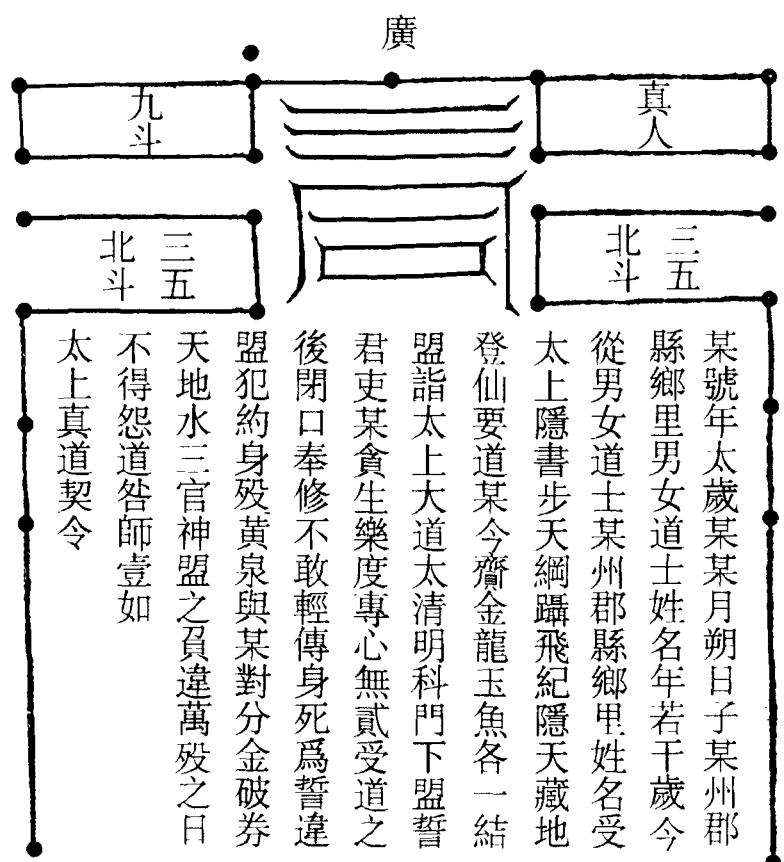 廣
真人
九斗
三五
北斗
三五
北斗
某號年太歲某某月朔日子某州郡
縣鄉里男女道士姓名年若干歲今
從男女道士某州郡縣鄉里姓名受
太上隱書步天綱躡飛紀隱天藏地
登仙要道某今齎金龍玉魚各一結
盟詣太上大道太清明科門下盟誓
君吏某貪生樂度專心無貳受道之
後閉口奉修不敢輕傳身死爲誓違
盟犯約身歿黄泉與某對分金破券
天地水三官神盟之負違萬歿之日
不得怨道咎師壹如
太上真道契令